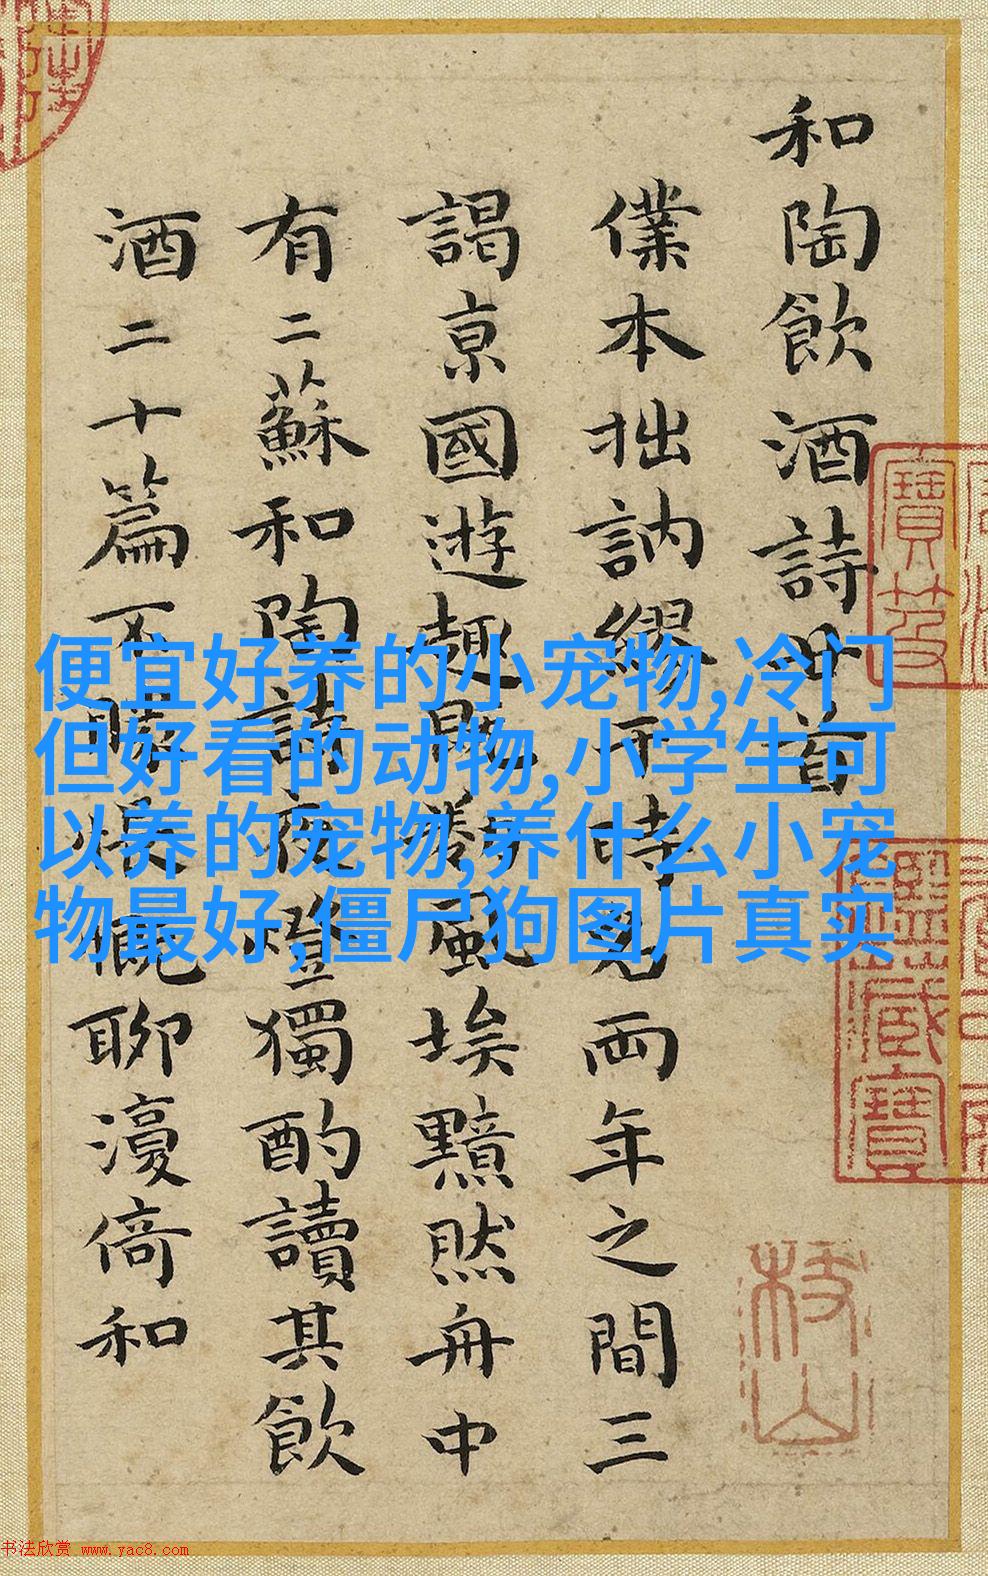 和陶飲酒詩廿首
僕本拙訥繆干時名兩年之間三
謁京國遊趣既風埃黯然舟中
有二蘇和陶詩夜燈獨酌讀其飲
酒二十篇不勝悵慨聊倚和
便宜好养的小宠物,冷门
但好看的动物,小学生可
以养的宠物,养什么小宠
物最好,僵尸狗图片真实
枝山
书法欣赏 www.yac8.com